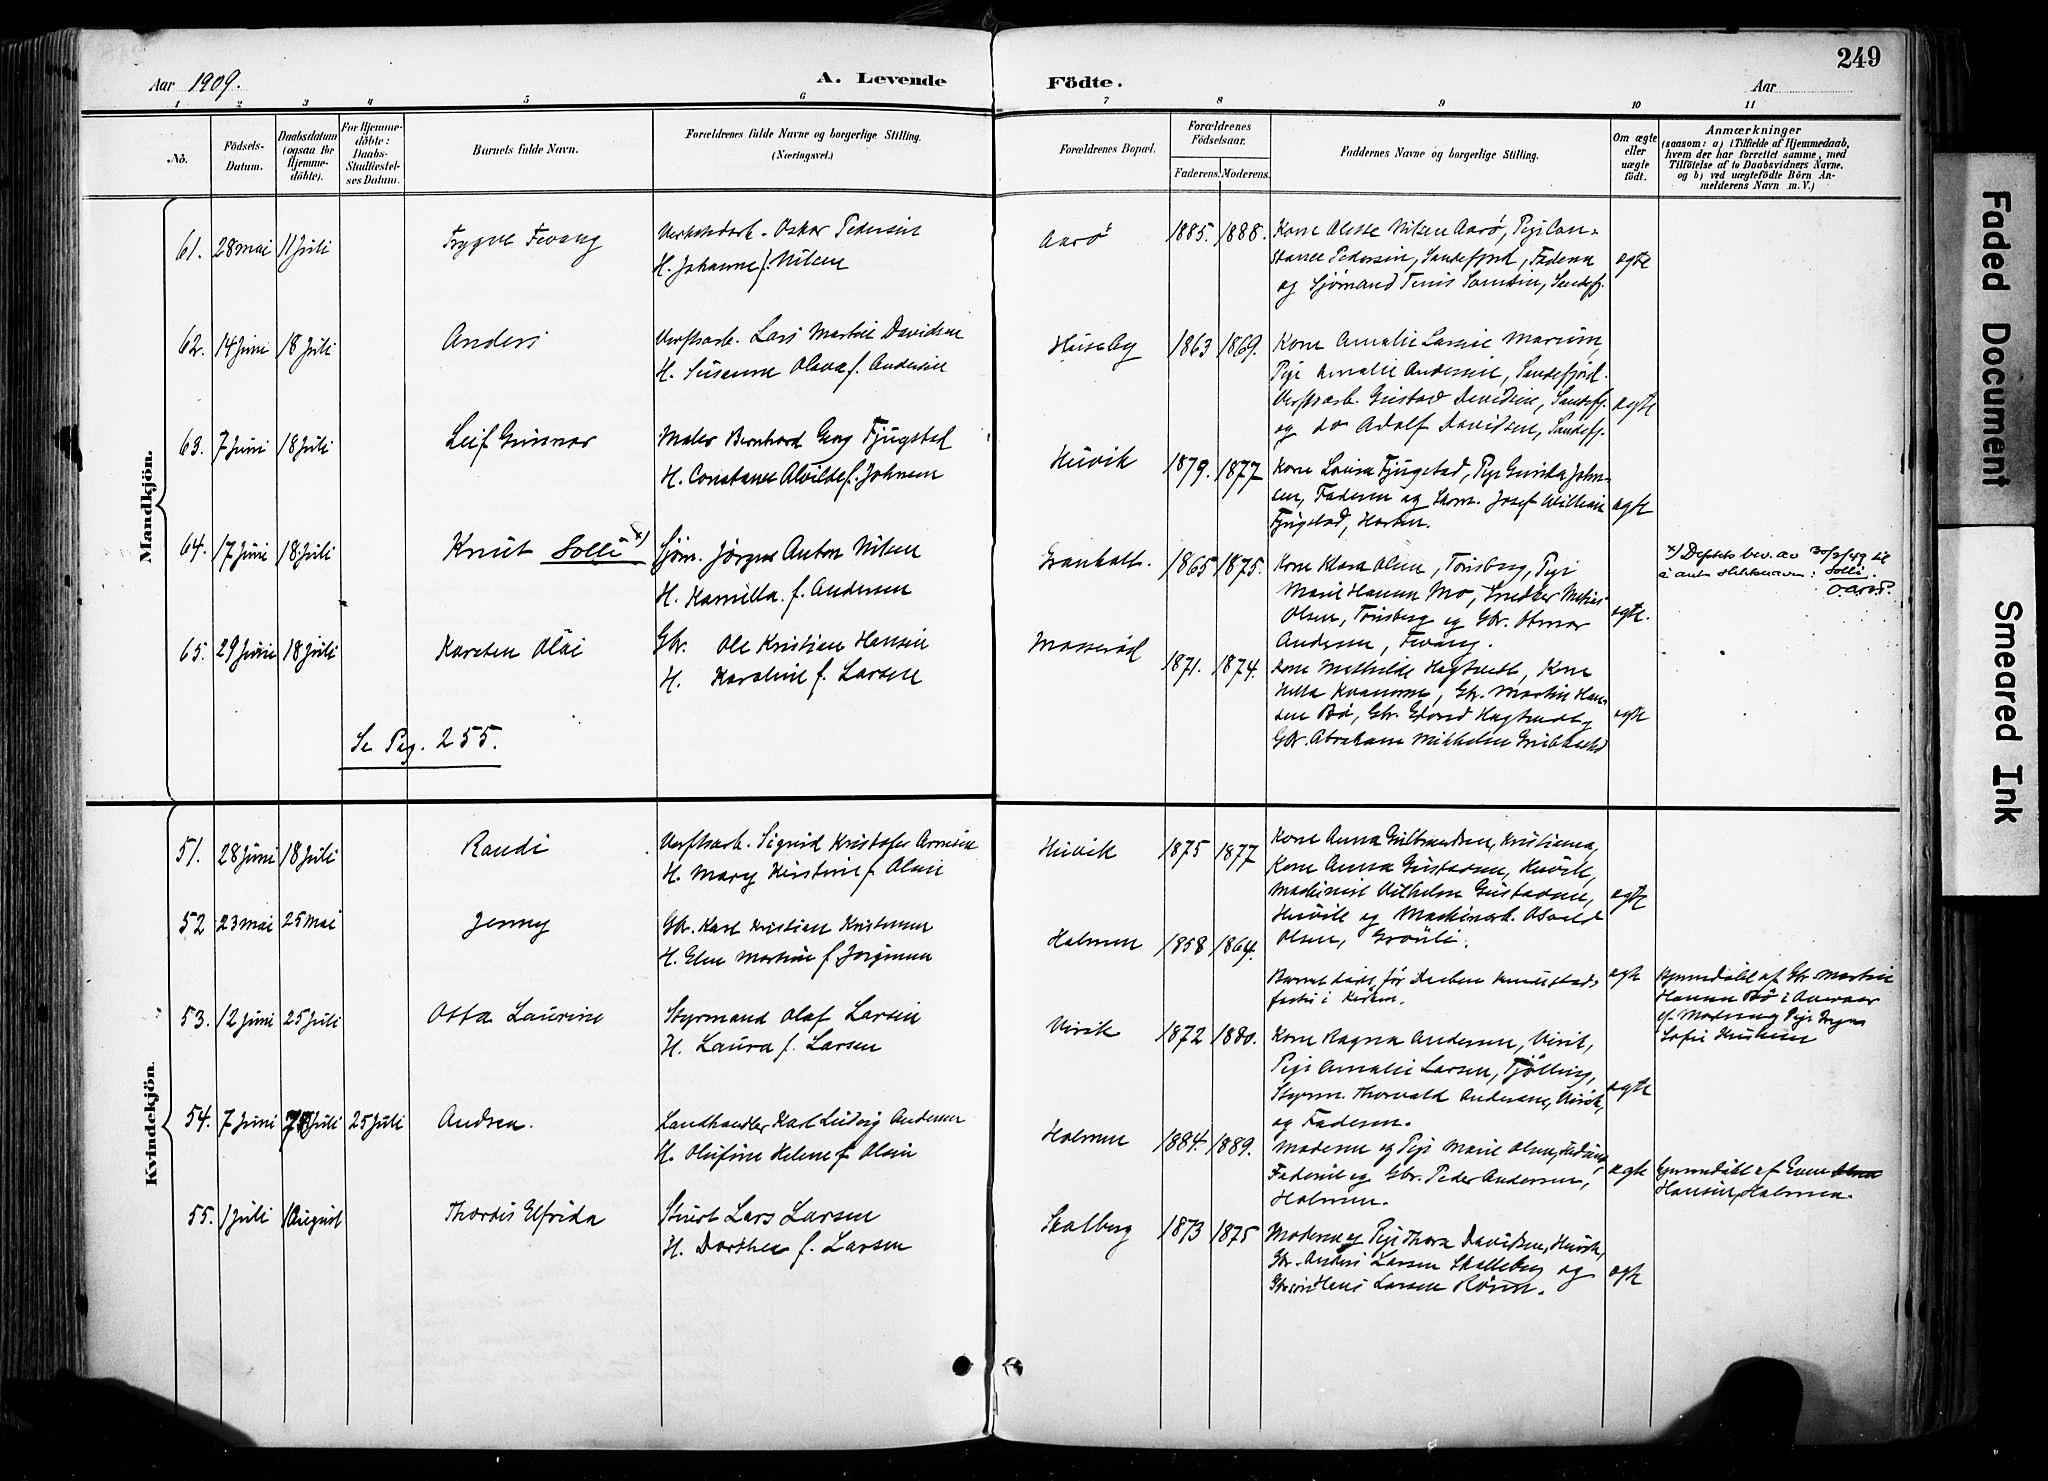 249
Aar 1909.
A. Levende
Födte.
Aar
1 2 3 4 5 6 7 8 9 10 11
No.
Födsels-
Datum.
Daabsdatum
(ogsaa for
Hjemme-
döbte).
For Hjemme-
döbte:
Daabs-
Stadfæstel-
ses Datum.
Barnets fulde Navn.
Forældrenes fulde Navne og borgerlige Stilling.
(Næringsvei.)
Forældrenes Bopæl.
Forældrenes
Födselsaar.
Faderens. Moderens.
Faddernes Navne og borgerlige Stilling.
Om ægte
eller
uægte
födt.
Anmærkninger
(saasom: a) i Tilfælde af Hjemmedaab,
hvem der har forrettet samme, med
Tilföielse af to Daabsvidners Navne.
og b) ved uægtefödte Börn An-
melderens Navn m. V.)
Mandkjön.
61. 28 mai 11 Juli Trygve Fevang
Oskar Pedersen
H. Johanne f. Nilsen
Aarø 1885. 1888.
Kone Alesse Nilsen Aarø, Pige Con-
stance Pedersen, Sandefjord, Faderen
og Sjømand
ægte
62. 14 Juni 18 Juli Anders
Verftsarb. Lars Martin Davidsen
H. Susanne Olava f. Andersen
Huseby 1863 1869.
Kone Amalie Larsen
Pige Amalie Andersen, Sandefjord.
Verftsarb. Gustav Davidsen, Sandefj.
og do Adolf Davidsen, Sandefj.
ægte
63. 7 Juni 18 Juli Leif Gunnar
Maler Bernhard Georg Fjugstad
H. Constance Alvilde f. Johnsen
Huvik 1879. 1877
Kone Lovisa Fjugstad, Pige Gunda John-
sen, Faderen og Josef William
Fjugstad, Horten.
ægte
64. 17 Juni 18 Juli Knut Solli x)
Sjøm. Jørgen Anton Nilsen
H. Kamilla f. Andersen
Granholt. 1865 1875.
Kone Klara Olsen, Tönsberg, Pige
Marie Hanna Mo, Snedker Matias
Olsen, Tönsberg og Gbr. Otmar
Andersen, Fevang.
ægte.
x) Depets bev. av 30/3/49 til
å anta slektsnavn: Solli.
65. 29 Juni 18 Juli Karsten Olai
Gbr. Ole Kristian Hansen
H. Karoline f. Larsen
Massesröd 1871. 1874.
Kone Mathilde Hagtvedt, Kone
Hella Gbr. Martin Han-
sen Bö, Gbr. Edvard Hagtvedt og
Gbr. Abraham Mikkelsen
ægte
Se Pag. 255.
Kvindekjön.
51. 28 Juni 18 Juli Randi
Verftsarb. Sigurd Kristofer Arnesen
H. Mary Kristine f. Olsen
Huvik 1875 1877
Kone Anna Gulbrandsen, Kristiania,
Kone Anna Gustavsen, Huvik,
Maskinist Vilhelm Gustavsen,
Huvik og Maskinarb. Osvald
Olsen, Grönli.
ægte
52 23 mai 25 mai Jenny
Gbr. Karl Kristian Kristensen
H. Elen Martine f. Jörgensen
Holmen 1858 1864.
Barnet døde før Daaben kunde stad-
fæstes i Kirken.
ægte
Hjemmedöbt af Gbr. Martin
Hansen Bö i Overvær
af Moderen og Pige
Sofie
53. 12 Juni 25 Juli Asta Laurine
Styrmand Olaf Larsen
H. Laura f. Larsen
Virik 1872 1880.
Kone Ragna Andersen, Virik,
Pige Amalie Larsen, Tjölling,
Styrm. Thorvald Andersen, Virik,
og Faderen.
ægte
54. 7 Juni Juli 25 Juli Andrea.
Landhandler Karl Ludvig Andersen
H. Olufine Helene f. Olsen
Holmen 1884. 1889.
Moderen og Pige Marie Olsen,
Faderen og Gbr. Peder Andersen,
Holmen.
ægte
Hjemmedöbt af Even
Hansen, Holmen.
55. 1 Juli 1 August Thordis Elfrida
Stuert Lars Larsen
H. Dorthea f. Larsen
Skalberg 1873 1875
Moderen og Pige Thora Davidsen, Huvik,
Gbr. Anders Larsen Skalleberg og
Larsen
ægte
Faded Document
Smeared Ink